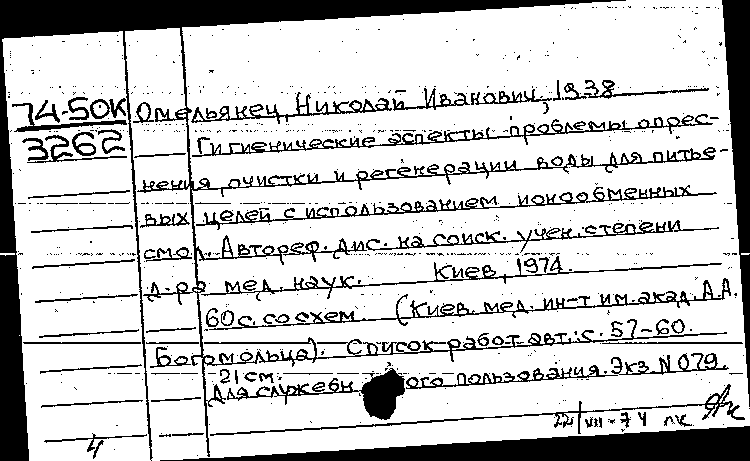 74-50К Омельянец, Николай Иванович, 1938
3262 Гигиенические аспекты проблемы опрес-
нения, очистки и регенерации воды для питье-
вых целей с использованием ионообменных
смол. Автореф. дис. на соиск. учен. степени
д-ра мед. наук. Киев, 1974.
60 с. со схем (Киев. мед. ин-т им. акад. А.А.
Богомольца). Список работ авт.: с. 57-60.
21 см.
Для служебн ого пользования. Экз. N 079.
22/VII-74
4